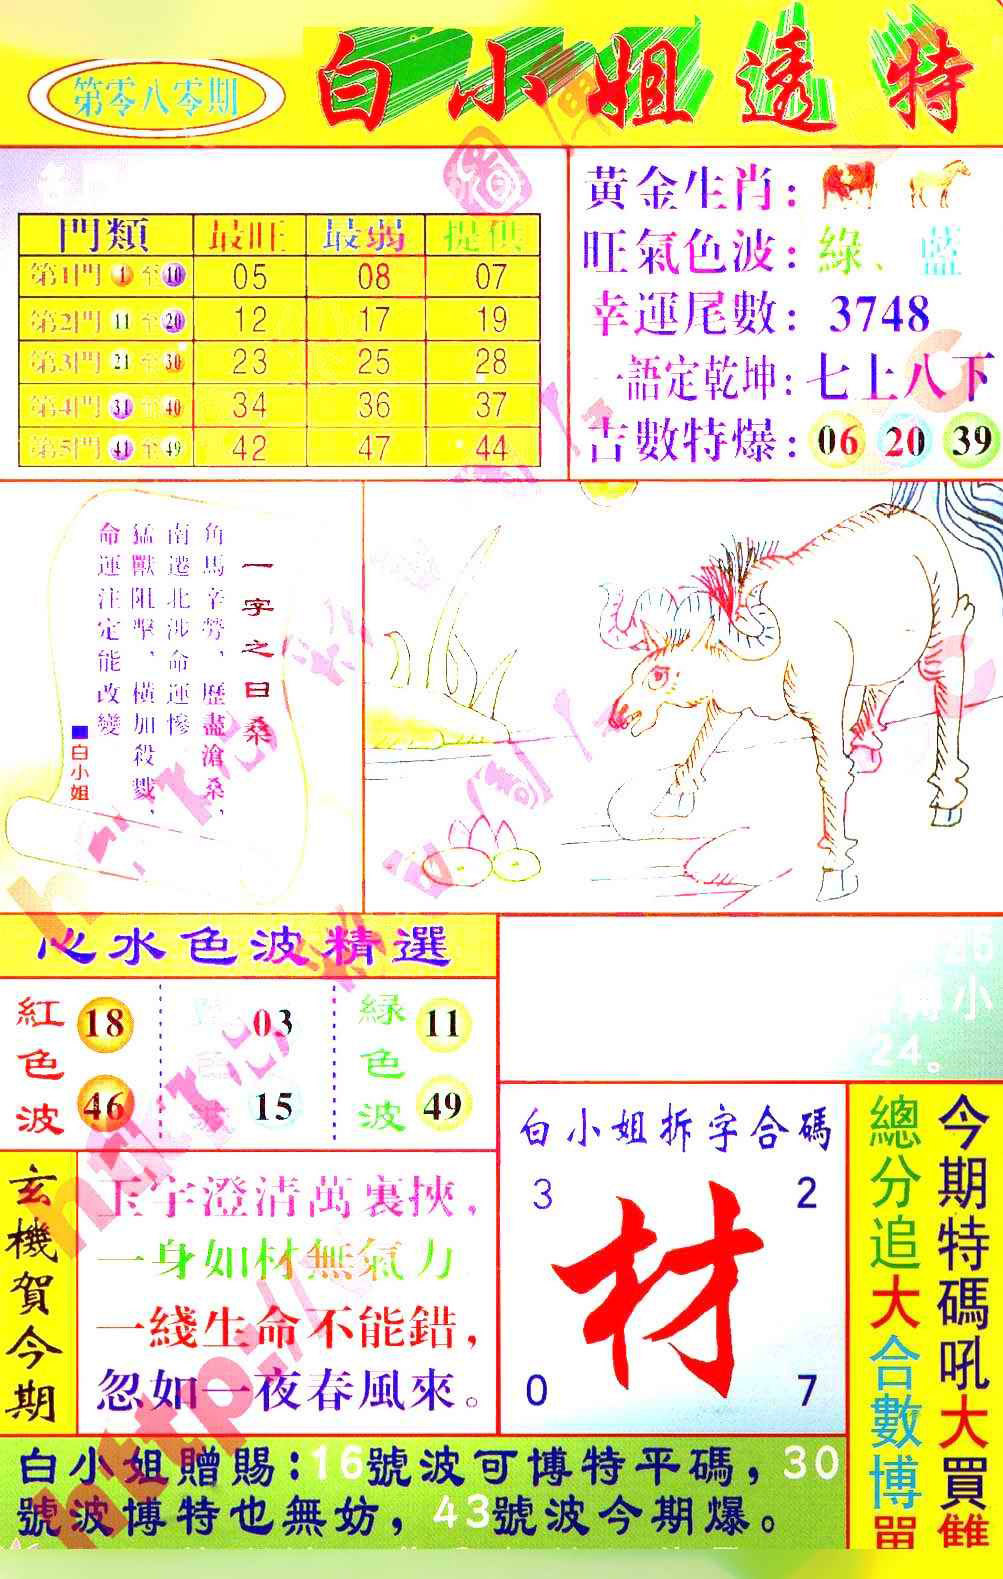 第零八零期
白小姐透特
門類 最旺 最弱 提供
第1門 1 至 10 05 08 07
第2門 11 至 20 12 17 19
第3門 21 至 30 23 25 28
第4門 31 至 40 34 36 37
第5門 41 至 49 42 47 44
黃金生肖：
旺氣色波：綠、藍
幸運尾數：3748
一語定乾坤：七上八下
吉數特爆：06 20 39
一字之曰桑
角馬辛勞、歷盡滄桑，
南遷北涉命運慘
猛獸阻擊、橫加殺戮，
命運注定能改變
■白小姐
心水色波精選
紅色波 18 46
03 15
綠色波 11 49
25
小
24。
玄機賀今期
玉宇澄清萬裏挾，
一身如材無氣力
一綫生命不能錯，
忽如一夜春風來。
白小姐拆字合碼
3 2
材
0 7
今期特碼吼大買雙
總分追大合數博單
白小姐贈賜：16號波可博特平碼，30
號波博特也無妨，43號波今期爆。